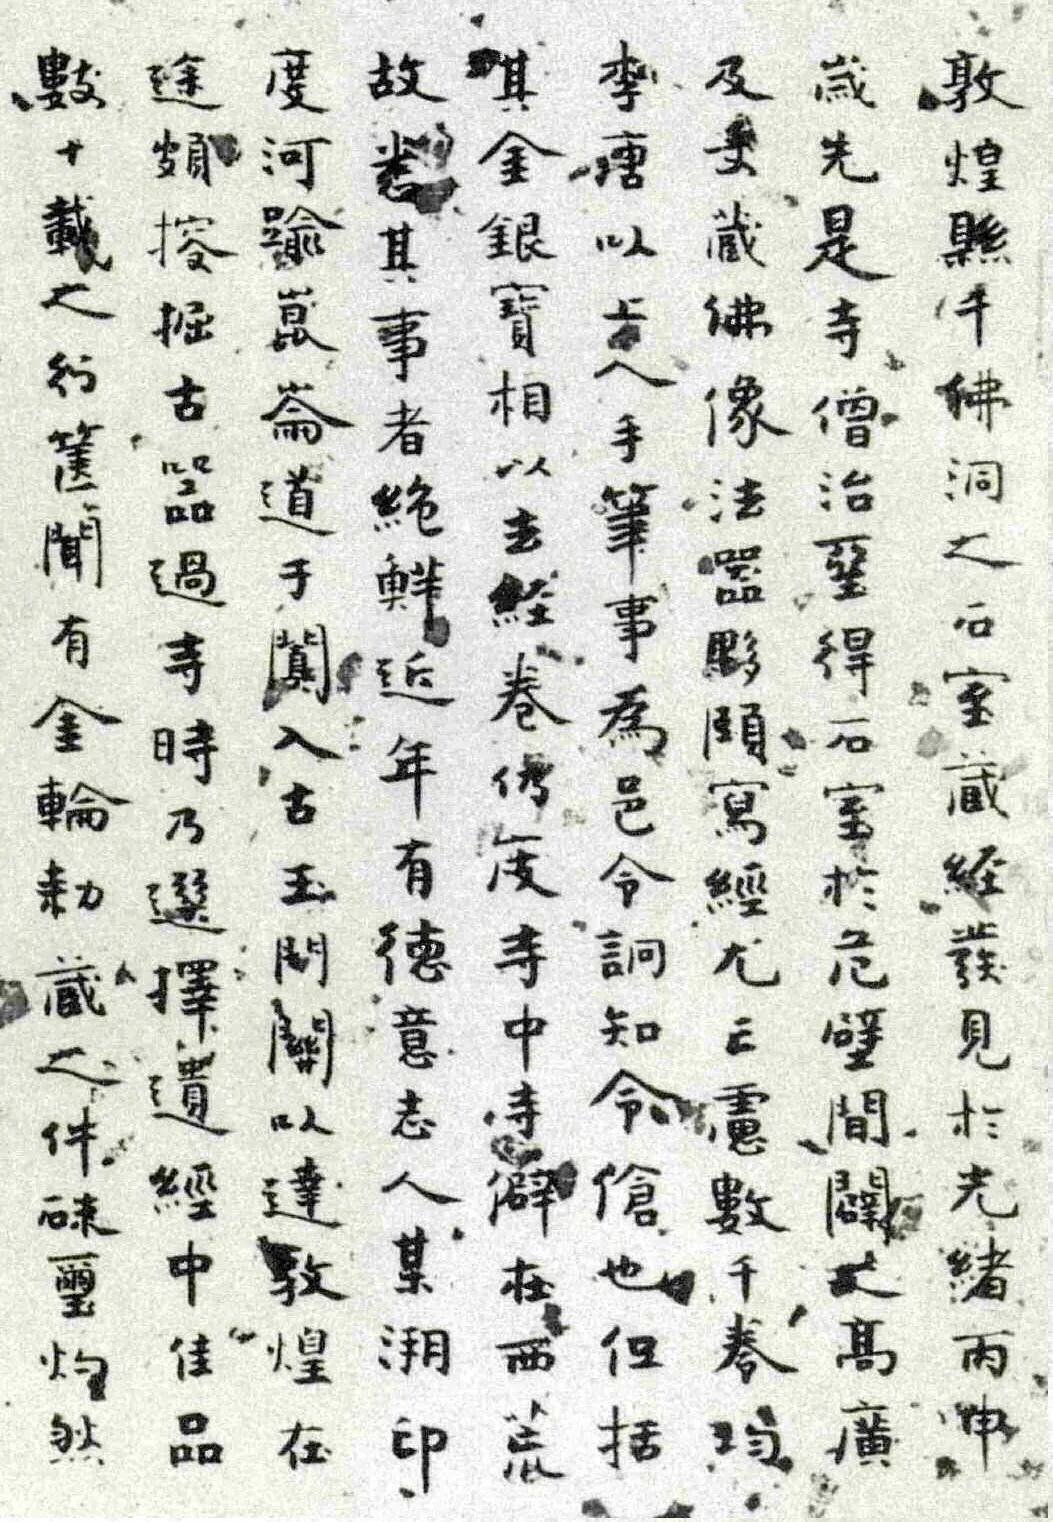 敦煌縣千佛洞之石室藏經發見於光緒丙申
歲先是寺僧治壁得石室於危壁間闢之高廣
及丈藏佛像法器夥頤寫經尤亡慮數千卷均
李唐以上人手筆事為邑令詗知令傖也但括
其金銀寶相以去經卷仍庋寺中寺僻在西荒
故悉其事者絶鮮近年有德意志人某溯印
度河踰崑崙道于闐入古玉門關以達敦煌在
途頗挖掘古器過寺時乃選擇遺經中佳品
數十載之行篋聞有金輪勅藏之件硃璽灼然